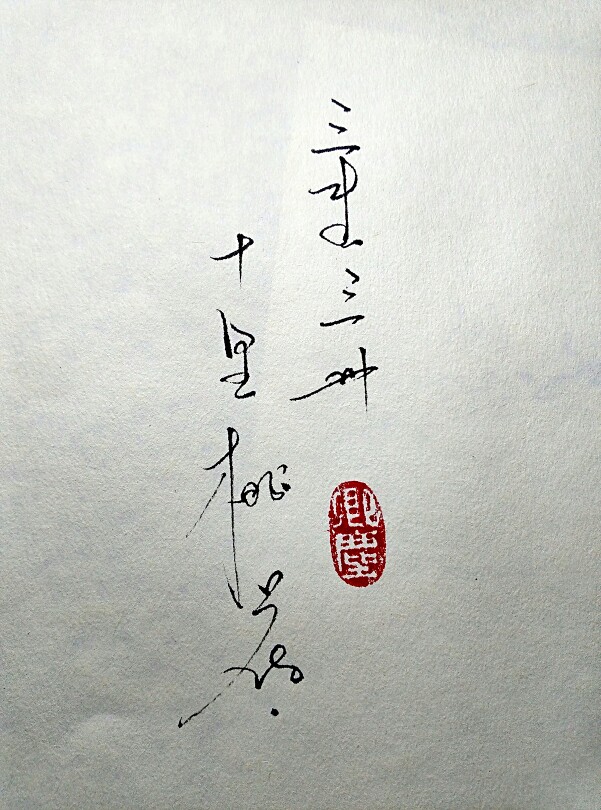 三生三世
十里桃花
卿塵